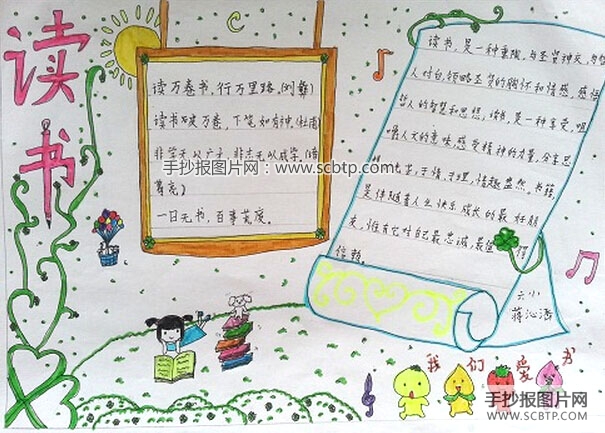 读书
读万卷书，行万里路。(刘彝)
读书破万卷，下笔如有神。(杜甫)
非学无以广才，非志无以成学。(诸
葛亮)
一日无书，百事荒废。
读书，是一种熏陶，与圣贤神交，与哲
人对白，领略圣贤的胸怀和情感，感悟
哲人的智慧和思想。读书，是一种享受，咀
嚼人文的意味，感受精神的力量，分享思
书，于情，于理，情趣盎然。书籍，
是伴随着人生快乐成长的最好朋
友，谁有它对自己最忠诚，最值得
信赖。
六小
蒋沁涵
我们爱书
手抄报图片网：www.scbtp.com
手抄报图片网
WWW.SCBTP.COM